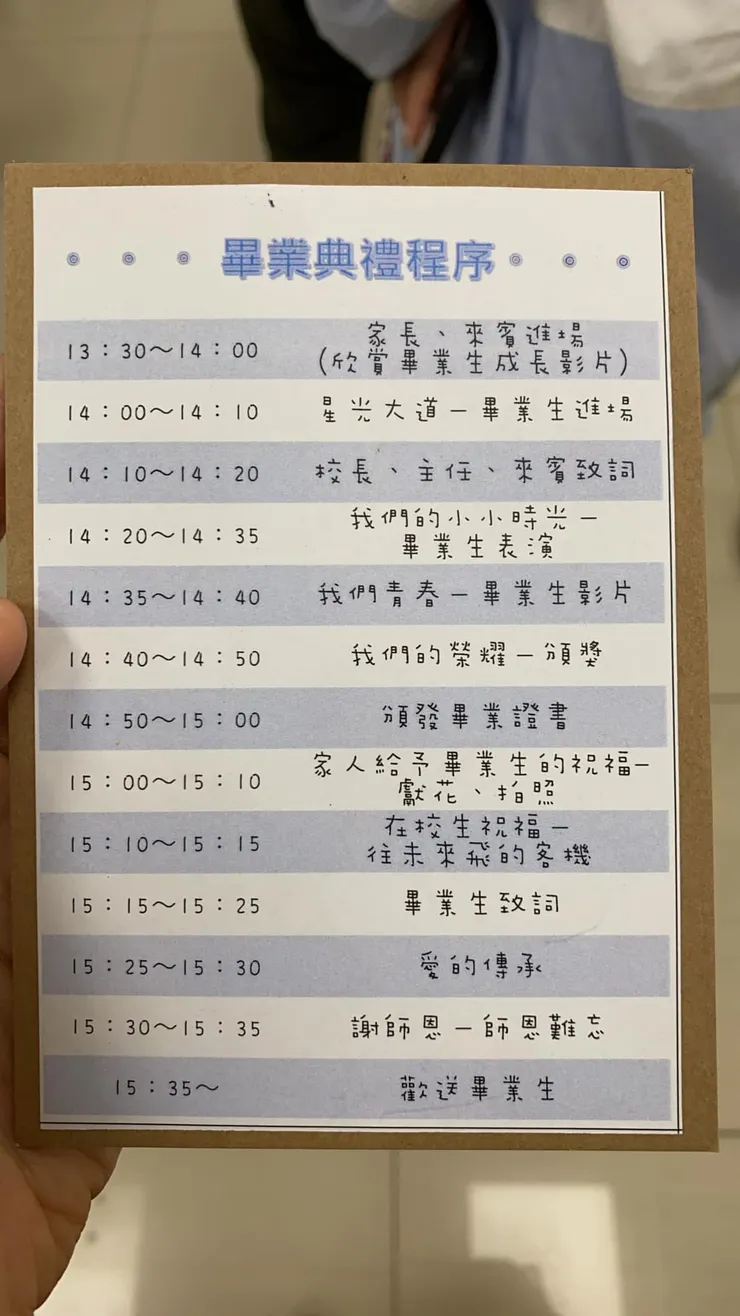 畢業典禮程序
13：30～14：00 家長、來賓進場
（欣賞畢業生成長影片）
14：00～14：10 星光大道－畢業生進場
14：10～14：20 校長、主任、來賓致詞
14：20～14：35 我們的小小時光－
畢業生表演
14：35～14：40 我們青春－畢業生影片
14：40～14：50 我們的榮耀－頒獎
14：50～15：00 頒發畢業證書
15：00～15：10 家人給予畢業生的祝福－
獻花、拍照
15：10～15：15 在校生祝福－
往未來飛的客機
15：15～15：25 畢業生致詞
15：25～15：30 愛的傳承
15：30～15：35 謝師恩－師恩難忘
15：35～ 歡送畢業生